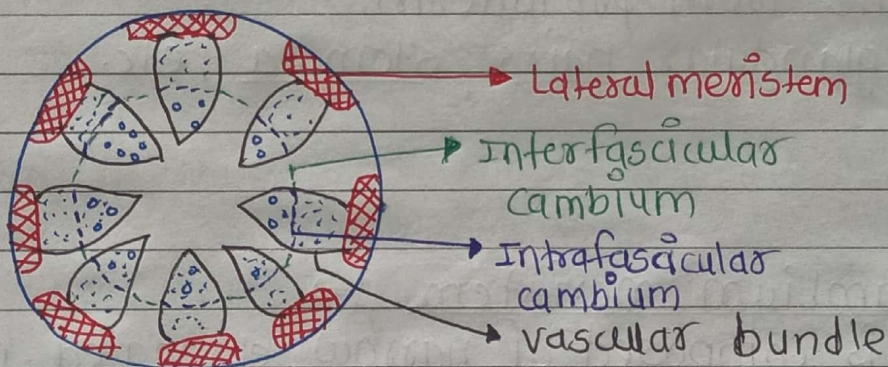 Lateral meristem
Interfascicular
cambium
Intrafascicular
cambium
vascular bundle